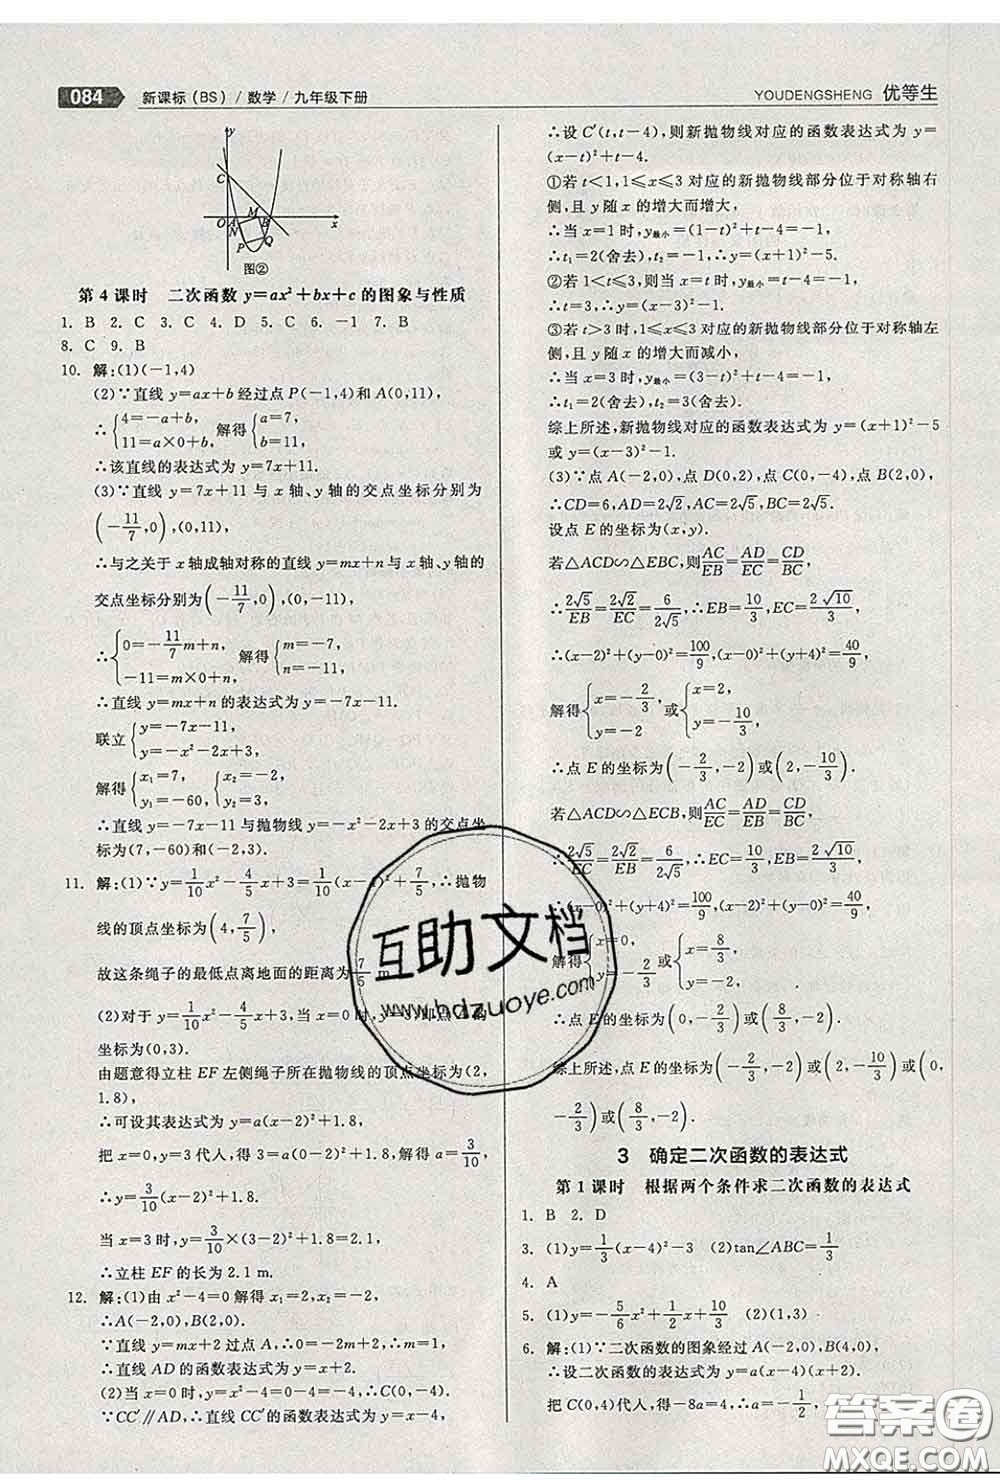 084 新课标(BS)/数学/九年级下册
YOUDENGSHENG 优等生
y
C
M
O A B x
N
P Q
图②
第4课时 二次函数 y=ax²+bx+c 的图象与性质
1. B 2. C 3. C 4. D 5. C 6. -1 7. B
8. C 9. B
10. 解:(1)(-1,4)
(2)∵直线 y=ax+b 经过点 P(-1,4)和 A(0,11),
∴{4=-a+b, 11=a×0+b, 解得{a=7, b=11.
∴该直线的表达式为 y=7x+11.
(3)∵直线 y=7x+11 与 x 轴、y 轴的交点坐标分别为
(-11/7,0),(0,11),
∴与之关于 x 轴成轴对称的直线 y=mx+n 与 x 轴、y 轴的
交点坐标分别为(-11/7,0),(0,-11),
∴{0=-11/7m+n, -11=m×0+n, 解得{m=-7, n=-11.
∴直线 y=mx+n 的表达式为 y=-7x-11.
联立{y=-7x-11, y=-x²-2x+3,
解得{x₁=7, y₁=-60, {x₂=-2, y₂=3,
∴直线 y=-7x-11 与抛物线 y=-x²-2x+3 的交点坐
标为(7,-60)和(-2,3).
11. 解:(1)∵y=1/10x²-4/5x+3=1/10(x-4)²+7/5,∴抛物
线的顶点坐标为(4,7/5),
故这条绳子的最低点离地面的距离为7/5 m.
(2)对于 y=1/10x²-4/5x+3,当 x=0 时,y=3,即点 A 的
坐标为(0,3).
由题意得立柱 EF 左侧绳子所在抛物线的顶点坐标为(2,
1.8),
∴可设其表达式为 y=a(x-2)²+1.8,
把 x=0,y=3 代人,得 3=a(0-2)²+1.8,解得 a=3/10,
∴y=3/10(x-2)²+1.8,
当 x=3 时,y=3/10×(3-2)²+1.8=2.1,
∴立柱 EF 的长为 2.1 m.
12. 解:(1)由 x²-4=0 解得 x₁=2,x₂=-2,
∴A(-2,0),B(2,0).
∵直线 y=mx+2 过点 A,∴0=-2m+2,∴m=1,
∴直线 AD 的函数表达式为 y=x+2.
(2)当 x=0 时,y=x²-4=-4,∴C(0,-4).
∵CC′∥AD,∴直线 CC′的函数表达式为 y=x-4,
∴设 C′(t,t-4),则新抛物线对应的函数表达式为 y=
(x-t)²+t-4.
①若 t<1,1≤x≤3 对应的新抛物线部分位于对称轴右
侧,且 y 随 x 的增大而增大,
∴当 x=1时,y最小=(1-t)²+t-4=-1,
∴t₁=2(舍去),t₂=-1,∴y=(x+1)²-5.
②若1≤t≤3,当 x=t 时,y最小=t-4=-1,
∴t=3,∴y=(x-3)²-1.
③若 t>3 时,1≤x≤3 对应的新抛物线部分位于对称轴左
侧,y 随 x 的增大而减小,
∴当 x=3 时,y最小=(3-t)²+t-4=-1,
∴t₁=2(舍去),t₂=3(舍去).
综上所述,新抛物线对应的函数表达式为 y=(x+1)²-5
或 y=(x-3)²-1.
(3)∵点 A(-2,0),点 D(0,2),点 C(0,-4),点 B(2,0),
∴CD=6,AD=2√2,AC=2√5,BC=2√5.
设点 E 的坐标为(x,y).
若△ACD∽△EBC,则AC/EB=AD/EC=CD/BC,
∴2√5/EB=2√2/EC=6/2√5,∴EB=10/3,EC=2√10/3,
∴(x-2)²+(y-0)²=100/9,(x-0)²+(y+4)²=40/9,
解得{x=-2/3, y=-2 或{x=-2, y=-10/3,
∴点 E 的坐标为(-2/3,-2)或(-2,-10/3).
若△ACD∽△ECB,则AC/EC=AD/EB=CD/BC,
∴2√5/EC=2√2/EB=6/2√5,∴EC=10/3,EB=2√10/3,
∴(x-0)²+(y+4)²=100/9,(x-2)²+(y-0)²=40/9,
解得{x=0, y=-2/3 或{x=8/3, y=-2,
∴点 E 的坐标为(0,-2/3)或(8/3,-2).
综上所述,点 E 的坐标为(-2/3,-2)或(-2,-10/3)或(0,
-2/3)或(8/3,-2).
3 确定二次函数的表达式
第1课时 根据两个条件求二次函数的表达式
1. B 2. D
3. (1)y=1/3(x-4)²-3 (2)tan∠ABC=1/3
4. A
5. (1)y=-5/6x²+1/2x+10/3 (2)(1,3)
6. 解:(1)∵二次函数的图象经过 A(-2,0),B(4,0),
∴设二次函数的表达式为 y=a(x-4)(x+2).
把 C(0,4)代人,得-8a=4,∴a=-1/2,
互助文档
www.hdzuoye.com
答案圈
MXQE.COM